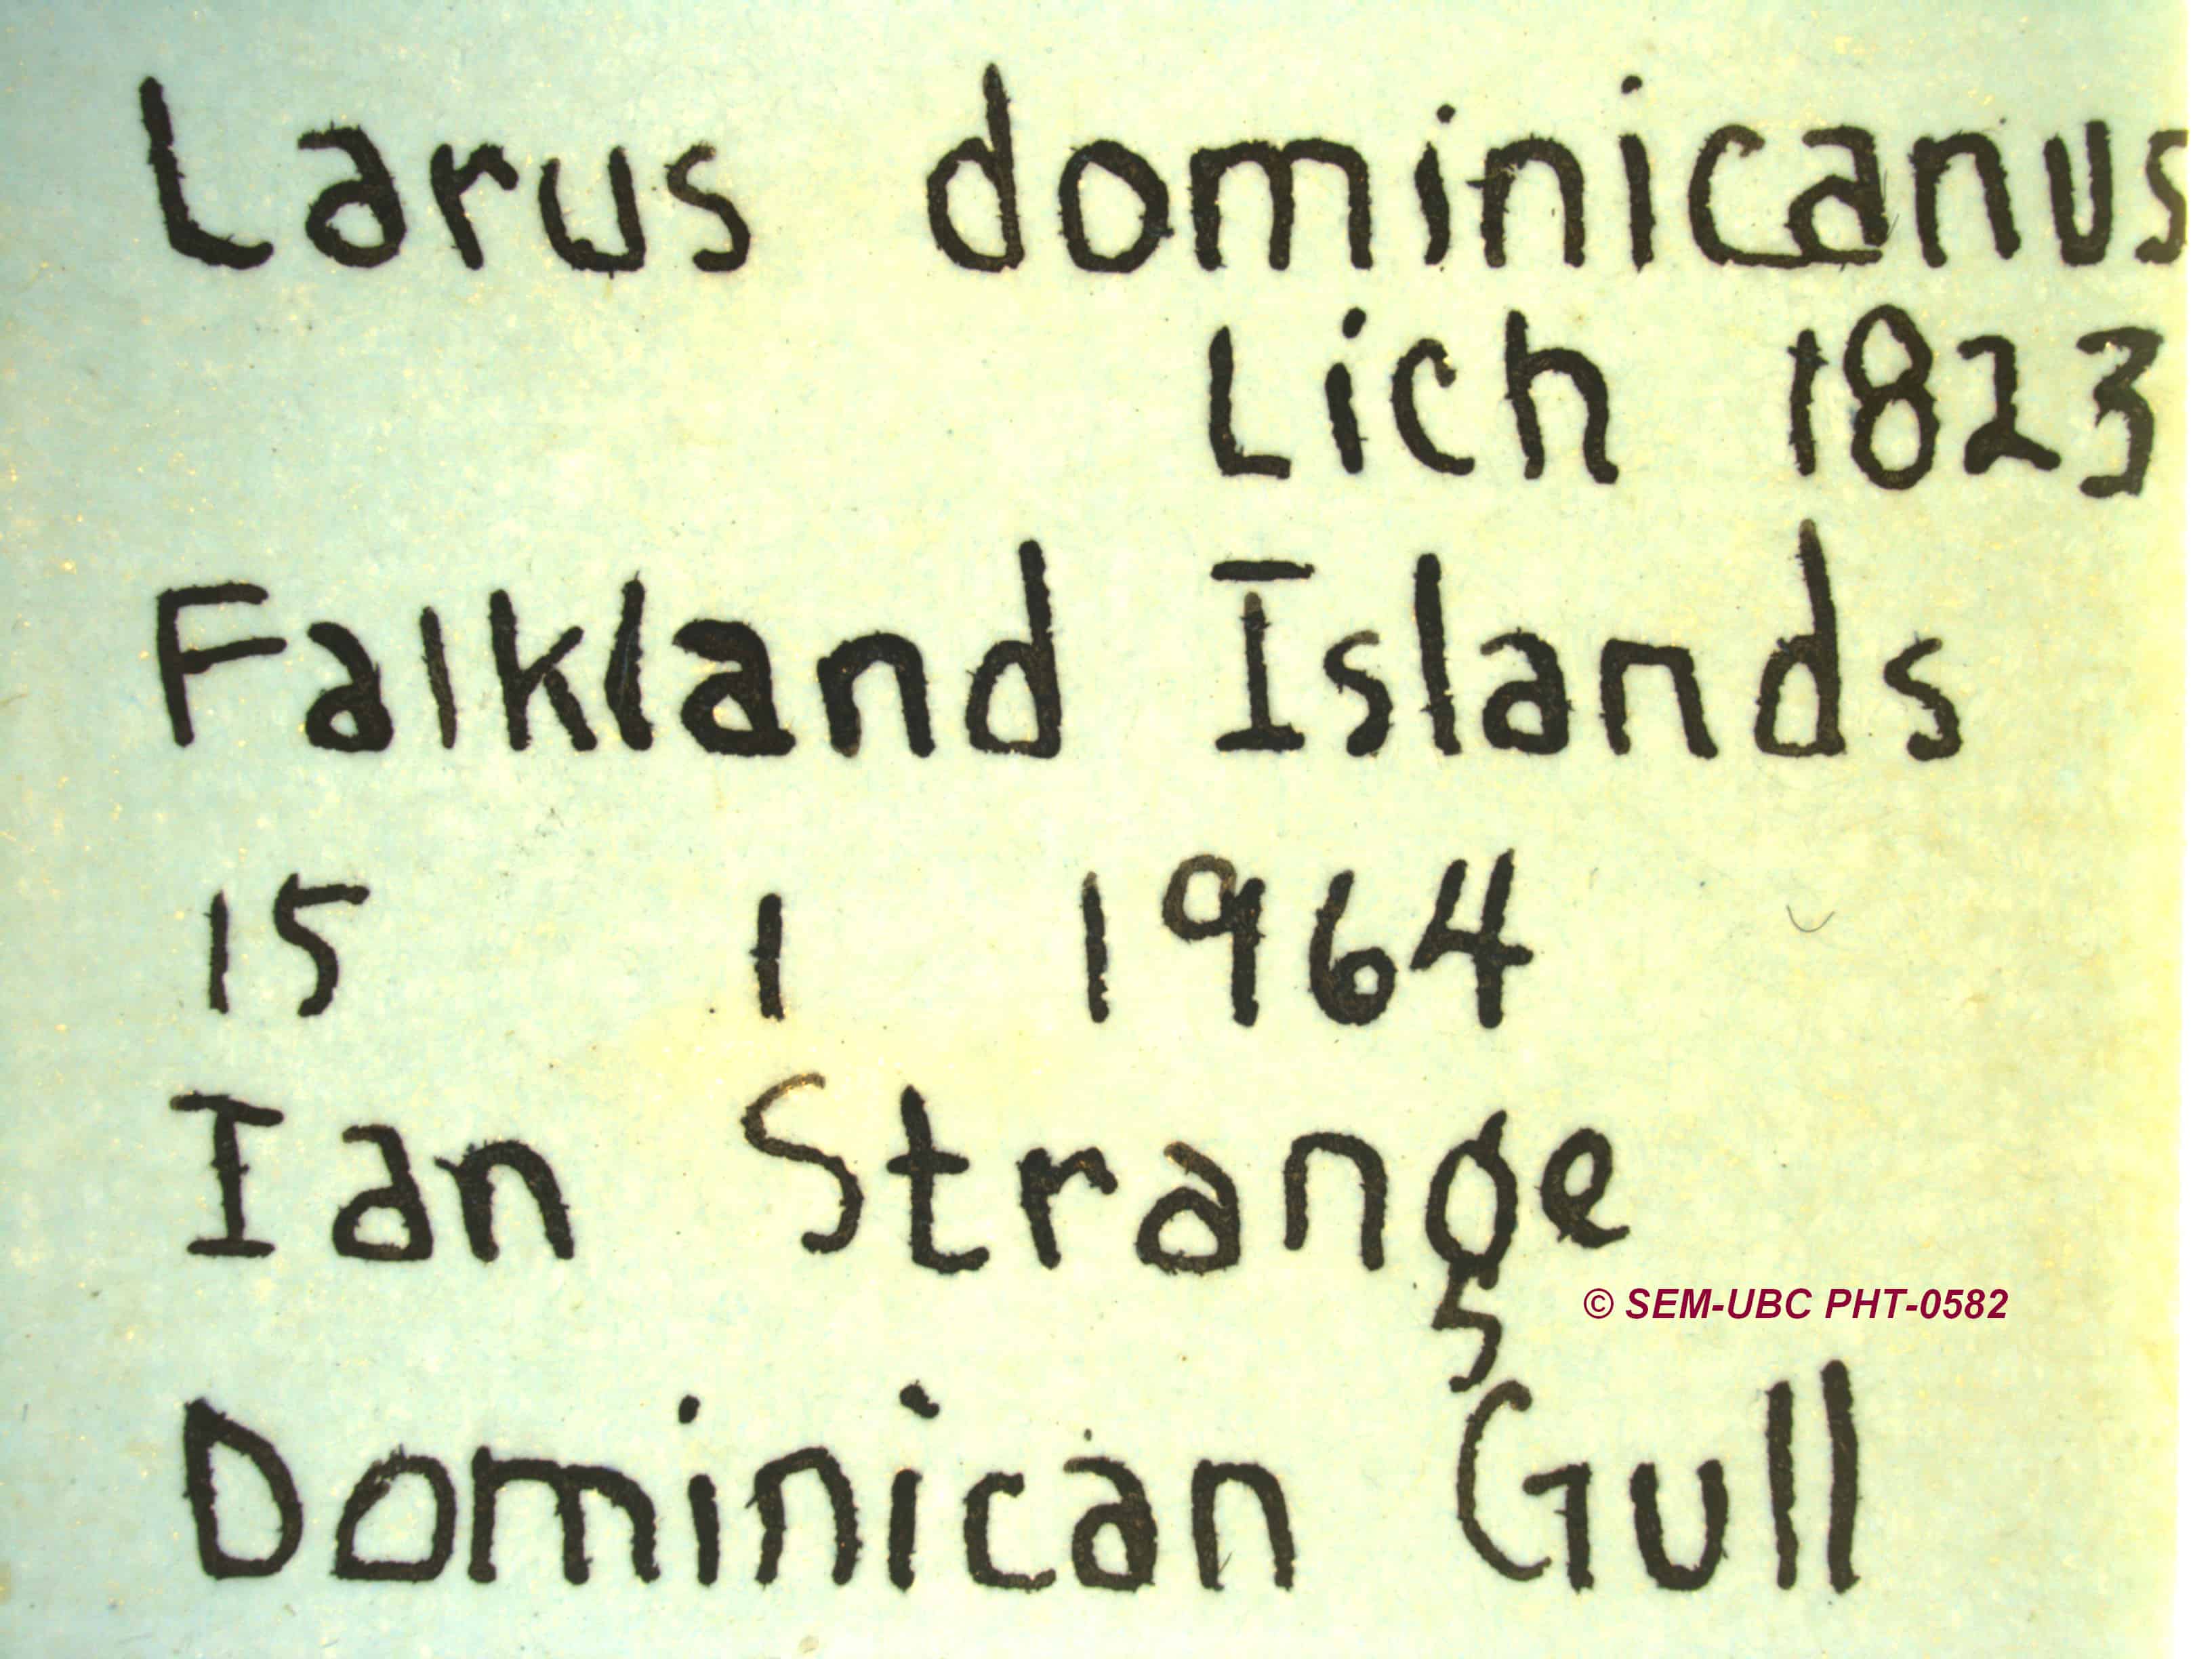 Larus dominicanus
Lich 1823
Falkland Islands
15 1 1964
Ian Strange
© SEM-UBC PHT-0582
Dominican Gull